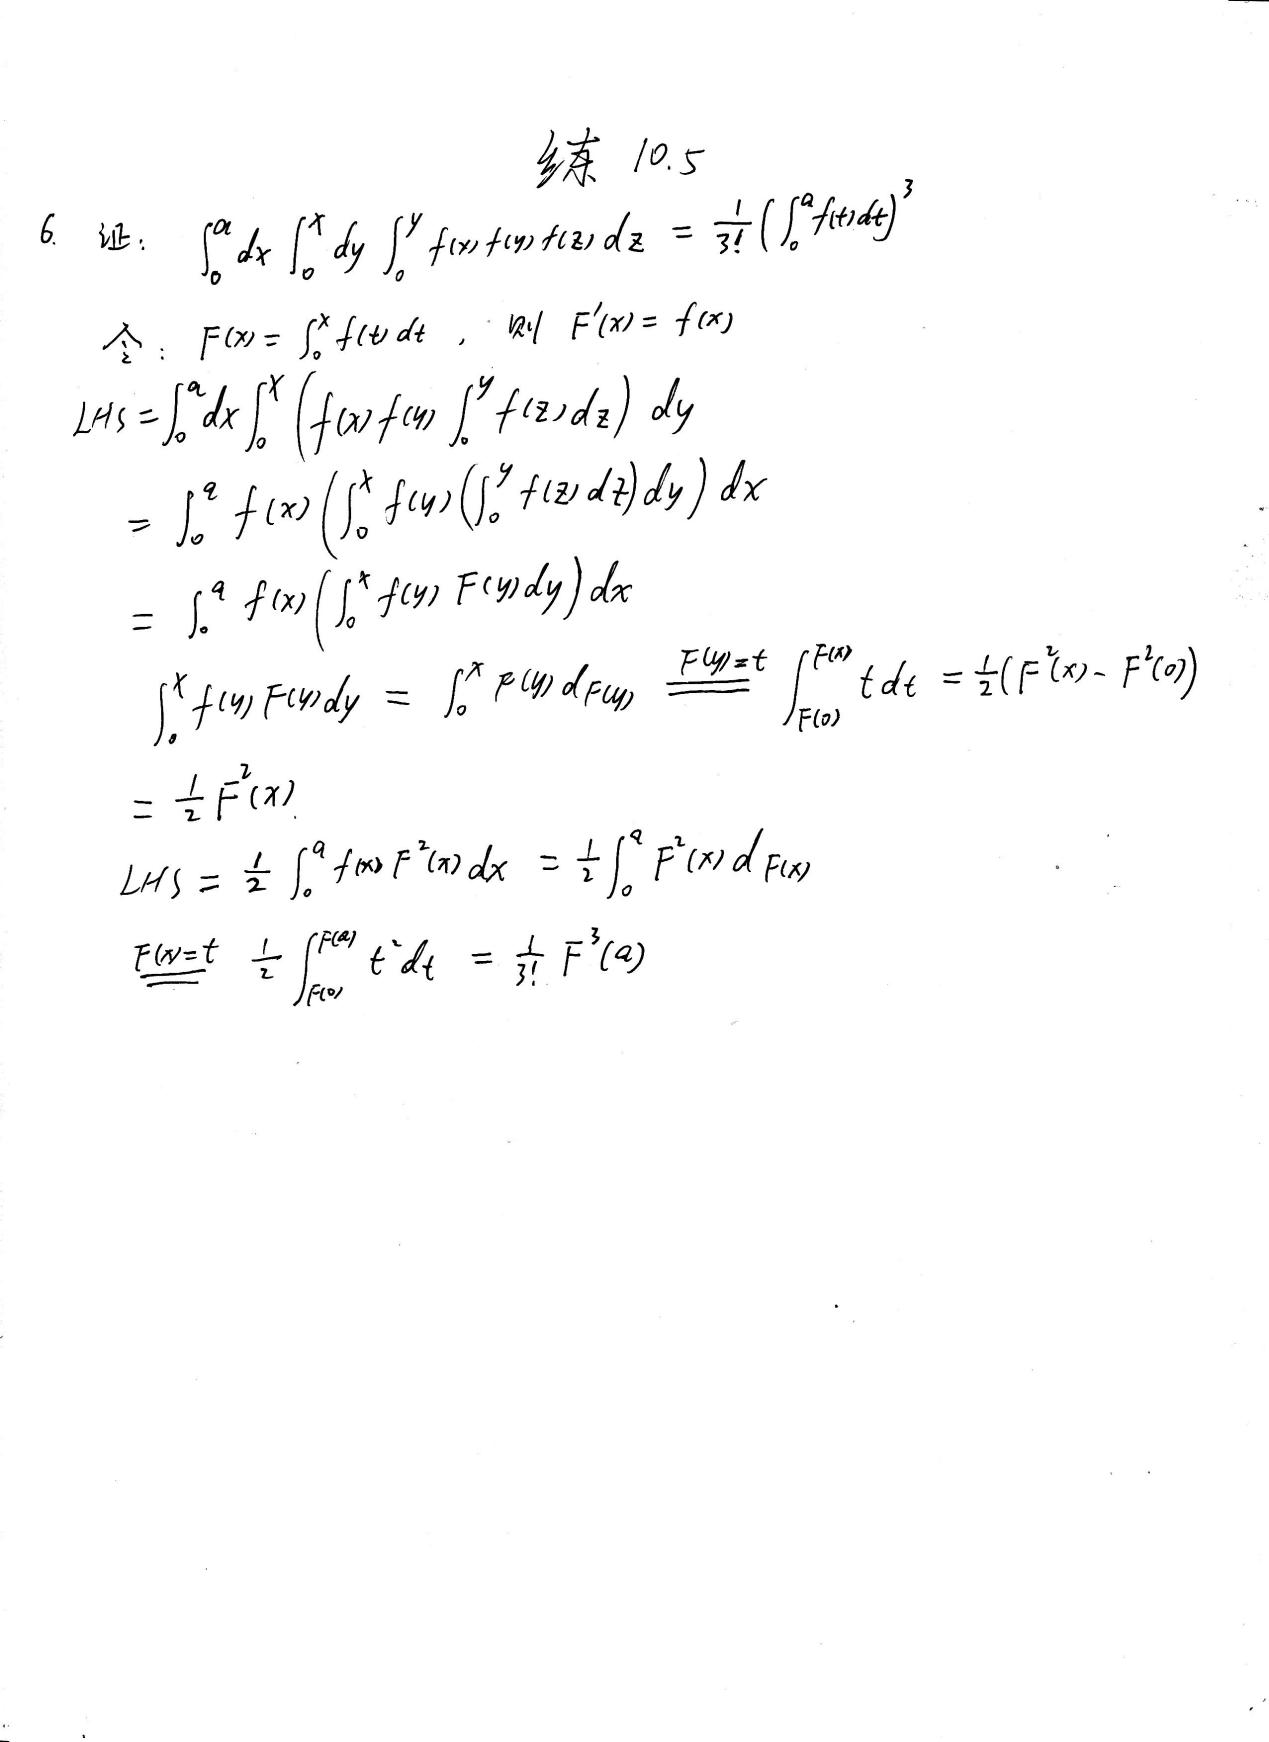 练 10.5
6. 证: ∫₀ᵃ dx ∫₀ˣ dy ∫₀ʸ f(x) f(y) f(z) dz = 1/3! (∫₀ᵃ f(t) dt)³
令: F(x) = ∫₀ˣ f(t) dt , 则 F'(x) = f(x)
LHS = ∫₀ᵃ dx ∫₀ˣ (f(x) f(y) ∫₀ʸ f(z) dz) dy
= ∫₀ᵃ f(x) (∫₀ˣ f(y) (∫₀ʸ f(z) dz) dy) dx
= ∫₀ᵃ f(x) (∫₀ˣ f(y) F(y) dy) dx
∫₀ˣ f(y) F(y) dy = ∫₀ˣ F(y) dF(y) F(y)=t ∫_{F(0)}^{F(x)} t dt = 1/2 (F²(x) - F²(0))
= 1/2 F²(x).
LHS = 1/2 ∫₀ᵃ f(x) F²(x) dx = 1/2 ∫₀ᵃ F²(x) d F(x)
F(x)=t 1/2 ∫_{F(0)}^{F(a)} t² dt = 1/3! F³(a)